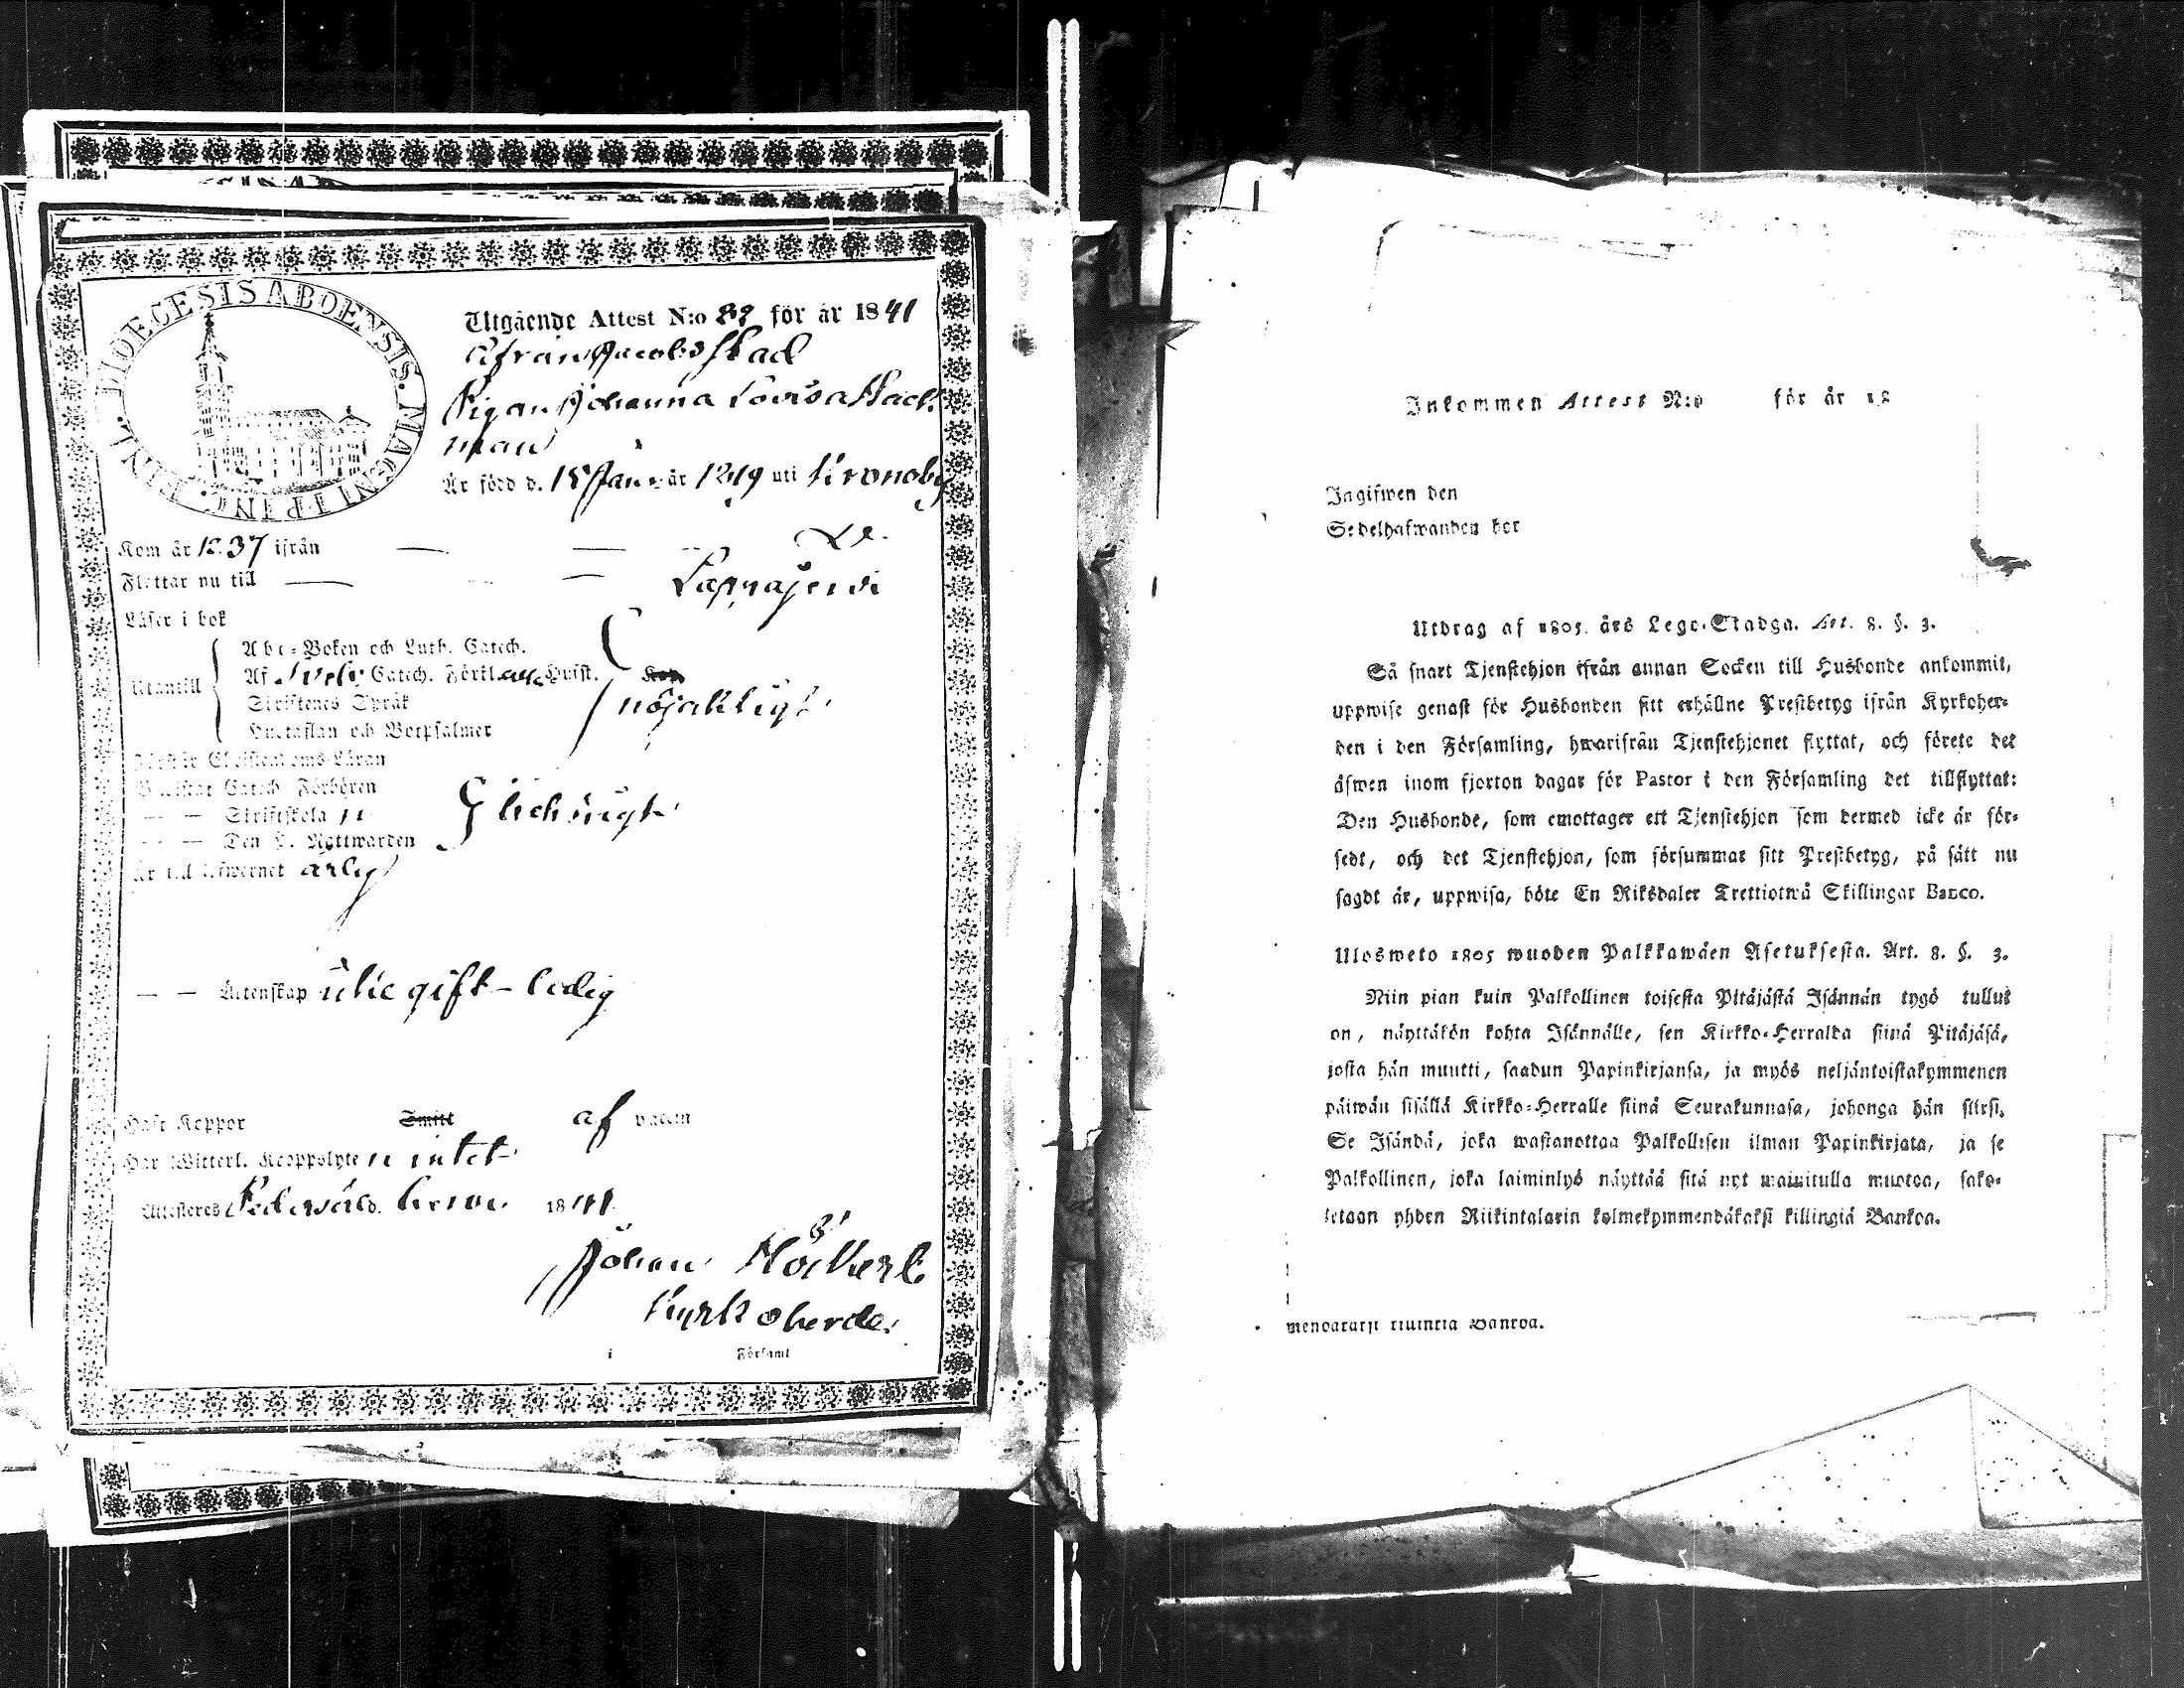 DIOECESIS ABOENSIS. MAGNI PRINC. FINL.
Utgående Attest N:o 82 för år 1841
ifrån Jacobstad
Pigan Johanna Lovisa Back
man
Är född d. 18 Janu. år 1819 uti Kronoby
Kom år 1837 ifrån — — D:o
Flyttar nu till — — Lappajervi
Läser i bok
Utantill
Abc-Boken och Luth. Catech.
Af Sveb. Catech. Förkl. Hust.
Skriftenes Språk
Hustaflan och Botpsalmer
nöjaktigt
Förstår Christendoms-Läran
Bewistar Catech. Förhören
— — Skriftskola
— — Den H. Nattwarden
Är till lefwernet ärlig
— — Äktenskap icke gift – ledig
Haft Koppor Smitt af vaccin
Har Witterl. Kroppslyten intet
Attesteres Pedersöre d. 1841
Johan
Kyrkoherde.
i Församl.
Inkommen Attest N:o för år 18
Ingifwen den
Sedelhafwanden bor
Utdrag af 1805 års Lego-Stadga. Art. 8. §. 3.
Så snart Tjenstehjon ifrån annan Socken till Husbonde ankommit,
uppwise genast för Husbonden sitt erhållne Prestbetyg ifrån Kyrkoher-
den i den Församling, hwarifrån Tjenstehjonet flyttat, och förete det
äfwen inom fjorton dagar för Pastor i den Församling det tillflyttat:
Den Husbonde, som emottager ett Tjenstehjon som dermed icke är för-
sedt, och det Tjenstehjon, som försummar sitt Prestbetyg, på sätt nu
sagdt är, uppwisa, böte En Riksdaler Trettiotwå Skillingar Banco.
Ulosweto 1805 wuoden Palkkawäen Asetuksesta. Art. 8. §. 3.
Niin pian kuin Palkollinen toisesta Pitäjästä Isännän tygö tullut
on, näyttäkön kohta Isännälle, sen Kirkko-Herralda siinä Pitäjäsä,
josta hän muutti, saadun Papinkirjansa, ja myös neljäntoistakymmenen
päiwän sisällä Kirkko-Herralle siinä Seurakunnasa, johonga hän siirsi.
Se Isändä, joka wastanottaa Palkollisen ilman Papinkirjata, ja se
Palkollinen, joka laiminlyö näyttää sitä nyt mainitulla muotoa, sako-
tetaan yhden Riikintalarin kolmekymmendäkaksi killingiä Bankoa.